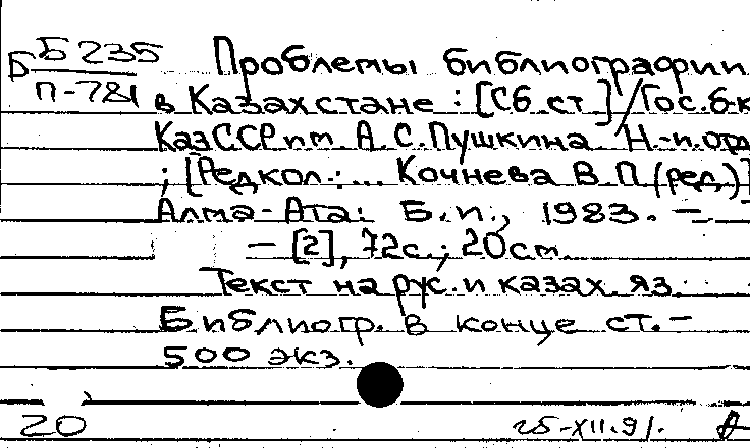 Б Б 235
П-781
Проблемы библиографии
в Казахстане : [Сб. ст.] / Гос. б-к
КазССР им А. С. Пушкина Н.-и. отд
; [Редкол.: ... Кочнева В. П. (ред.)]
Алма-Ата: Б. и., 1983. —
— [2], 72 с.; 20 см.
Текст на рус. и казах. яз.
Библиогр. в конце ст. —
500 экз.
20 25-XII.91.